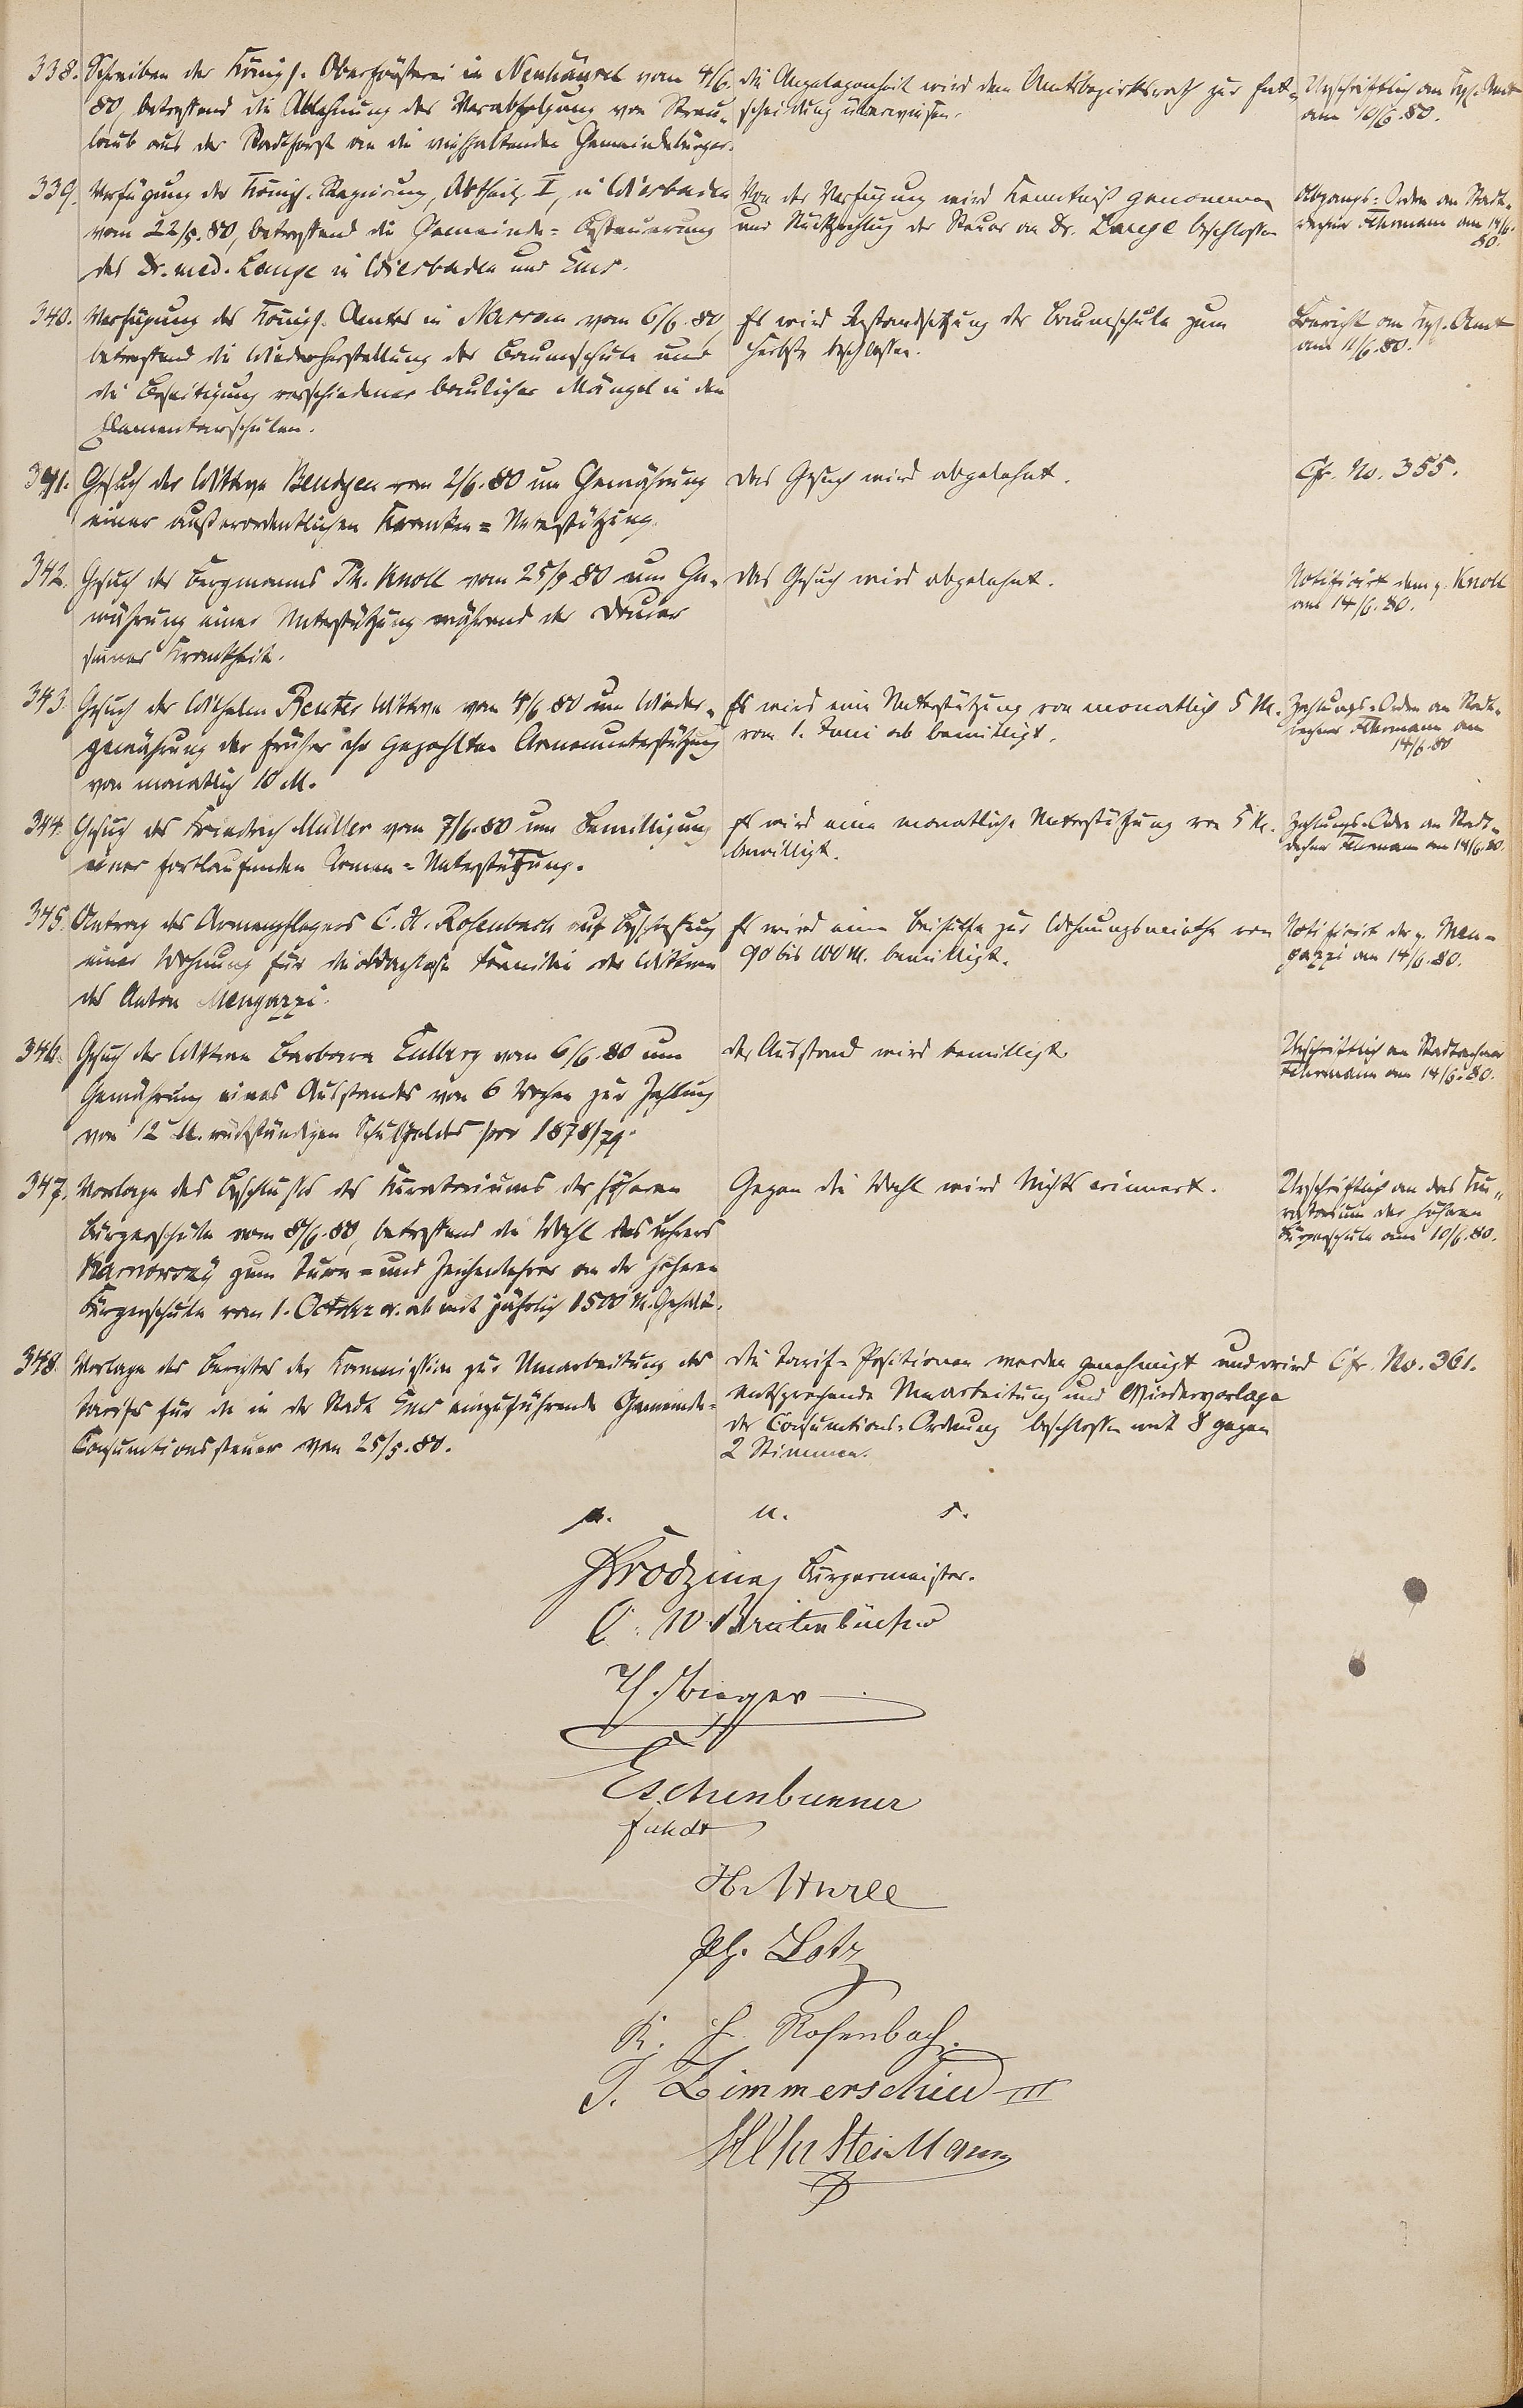 338. Schreiben der Königl. Oberförsterei in Neuhäusel vom 4/6.
80, betreffend die Ablehnung der Verabfolgung von Streu-
laub aus der Stadtforst an die viehhaltenden Gemeindebürger.
die Angelegenheit wird dem Amtsbezirksrath zur Ent-
scheidung überwiesen.
Urschriftlich an Kgl. Amt
am 10/6. 80.
339. Verfügung der Königl. Regierung, Abtheilg. I, in Wiesbaden
vom 22/5. 80, betreffend die Gemeinde=Besteuerung
des Dr. med. Lange in Wiesbaden und Ems.
Von der Verfügung wird Kenntniß genommen
und Rückzahlung der Steuer an Dr. Lange beschlossen
Abgangs=Ordre an Stadt-
rechner Fuhrmann am 14/6.
80.
340. Verfügung des Königl. Amtes in Nassau vom 6/6. 80,
betreffend die Wiederherstellung der Baumschule und
die Beseitigung verschiedener baulicher Mängel in den
Elementarschulen.
Es wird Instandsetzung der Baumschule zum
Herbste beschlossen.
Bericht an Kgl. Amt
am 11/6. 80.
341. Gesuch der Wittwe Bendgen vom 2/6. 80 um Gewährung
einer außerordentlichen Kranken=Unterstützung.
Das Gesuch wird abgelehnt.
Cfr. No. 355.
342. Gesuch des Bergmanns Ph. Knoll vom 25/5 80 um Ge-
währung einer Unterstützung während der Dauer
seiner Krankheit.
Das Gesuch wird abgelehnt.
Notificirt dem p. Knoll
am 14/6. 80.
343. Gesuch der Wilhelm Reuter Wittwe vom 4/6 80 um Wieder-
gewährung der früher ihr gezahlten Armenunterstützung
von monatlich 10 M.
Es wird eine Unterstützung von monatlich 5 M.
vom 1. Juni ab bewilligt.
Zahlungs=Ordre an Stadt-
rechner Fuhrmann am
14/6. 80
344. Gesuch des Friedrich Müller vom 7/6. 80 um Bewilligung
einer fortlaufenden Armen=Unterstützung.
Es wird eine monatliche Unterstützung von 5 M.
bewilligt.
Zahlungs=Ordre an Stadt-
rechner Fuhrmann am 14/6. 80.
345. Antrag des Armenpflegers C. H. Rosenbach auf Beschaffung
einer Wohnung für die obdachlose Familie der Wittwe
des Anton Mengazzi.
Es wird eine Beihülfe zur Wohnungsmiethe von
90 bis 100 M. bewilligt.
Notificirt der p. Men-
gazzi am 14/6. 80.
346. Gesuch der Wittwe Barbara Eulberg vom 6/6. 80 um
Gewährung eines Ausstandes von 6 Wochen zur Zahlung
von 12 M. rückständigen Schulgeldes pro 1878/79.
der Ausstand wird bewilligt
Urschriftlich an Stadtrechner
Fuhrmann am 14/6. 80.
347. Vorlage des Beschlusses des Kuratoriums der höheren
Bürgerschule vom 8/6. 80, betreffend die Wahl des Lehrers
Karnowsky zum Turn= und Zeichenlehrer an der höheren
Bürgerschule vom 1. October cr. ab mit jährlich 1500 M. Gehalt.
Gegen die Wahl wird Nichts erinnert.
Urschriftlich an das Ku-
ratorium der höheren
Bürgerschule am 10/6. 80.
348. Vorlage des Berichtes der Kommission zur Umarbeitung des
Tarifes für die in der Stadt Ems einzuführende Gemeinde=
Consumtionssteuer vom 25/5. 80.
die Tarif=Positionen werden genehmigt und wird
entsprechende Umarbeitung und Wiedervorlage
der Consumtions=Ordnung beschlossen mit 8 gegen
2 Stimmen.
Cfr. No. 361.
u. s.
Bürgermeister.
C. W. Breitenbücher
Eschenbrenner
H. Murll
Ph. Lotz
K. H. Rosenbach.
J. Zimmerschied III
Steinmann